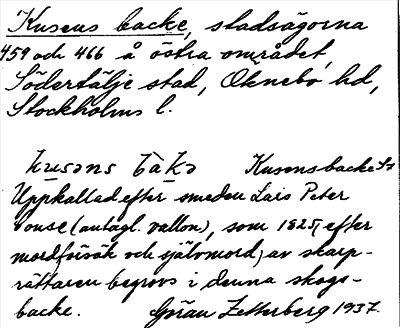 Kusens backe, stadsägorna
459 och 466 å östra området,
Södertälje stad, Öknebo hd,
Stockholms l.
kusəns bàkə Kusensbacke
Uppkallad efter smeden Lars Peter
ouse (antagl. vallon), som 1825, efter
mordförsök och självmord, av skarp-
rättaren begrovs i denna skogs-
backe. Göran Zetterberg 1937.